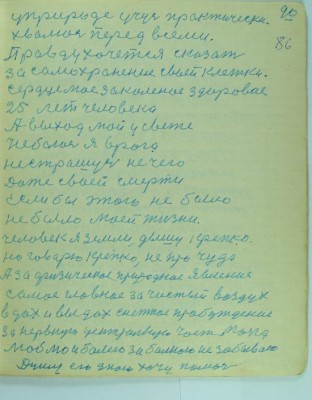 90
86
у природе учусь практически.
хвалюся перед всеми.
Правду хочется сказат
за самохранение своей клетки.
Сердце мое закаленое здоровое
25 лет человека
А выход мой у свете
Небоюсь я врага
нестрашусь нечего
Даже своей смерти
если бы этого не было
небыло моей жизни.
человек я земли, дышу крепко.
но говорю крепко, не про чудо
А за физическое природное явление
самое главное за чистый воздух
вдох и выдох снежное пробуждение
За нервную центральную част мозга
больного незабываю
Душу его знаю хочу помоч